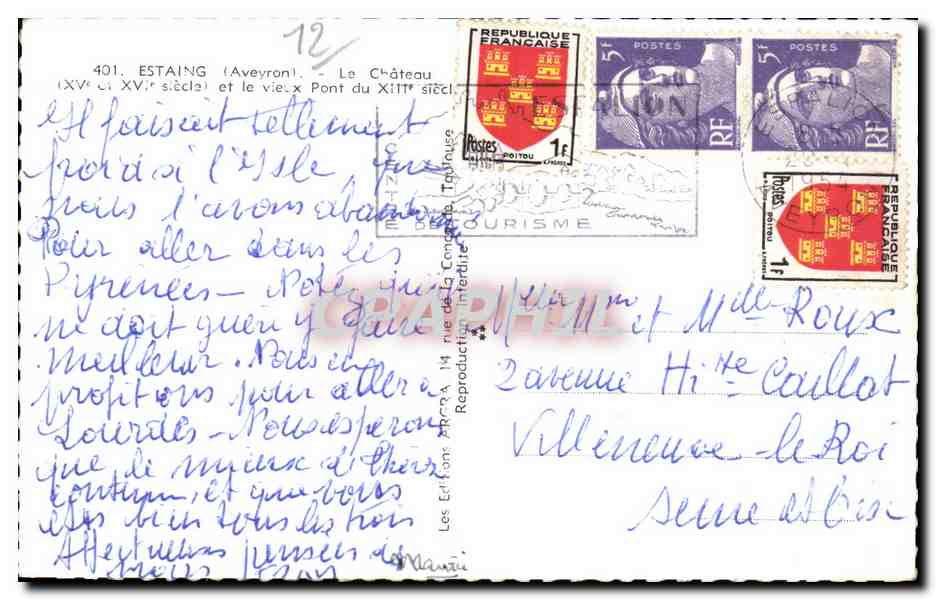 12
401. ESTAING (Aveyron). - Le Château
(XVe et XVIe siècle) et le vieux Pont du XIIIe siècle
Il faisait tellement
froid à l'Isle, que
nous l'avons abandonné
Pour aller dans les
Pyrénées - Notez qu'il
ne doit guère y faire
meilleur. Nous en
profitons pour aller à
Lourdes - Nous espérons
que le mieux d'
continue, et que vous
êtes bien tous les trois
Affectueuses pensées de
nous
Les Editions ARGRA 14 rue de la Concorde Toulouse
Reproduction interdite
REPUBLIQUE
FRANÇAISE
Postes
POITOU
1F
5F
POSTES
RF
5F
POSTES
RF
REPUBLIQUE
FRANÇAISE
Postes
POITOU
1F
DE TOURISME
1954
CPAPHIL
et Mlle Roux
2 avenue Hite Caillat
Villeneuve-le-Roi
Seine et Oise